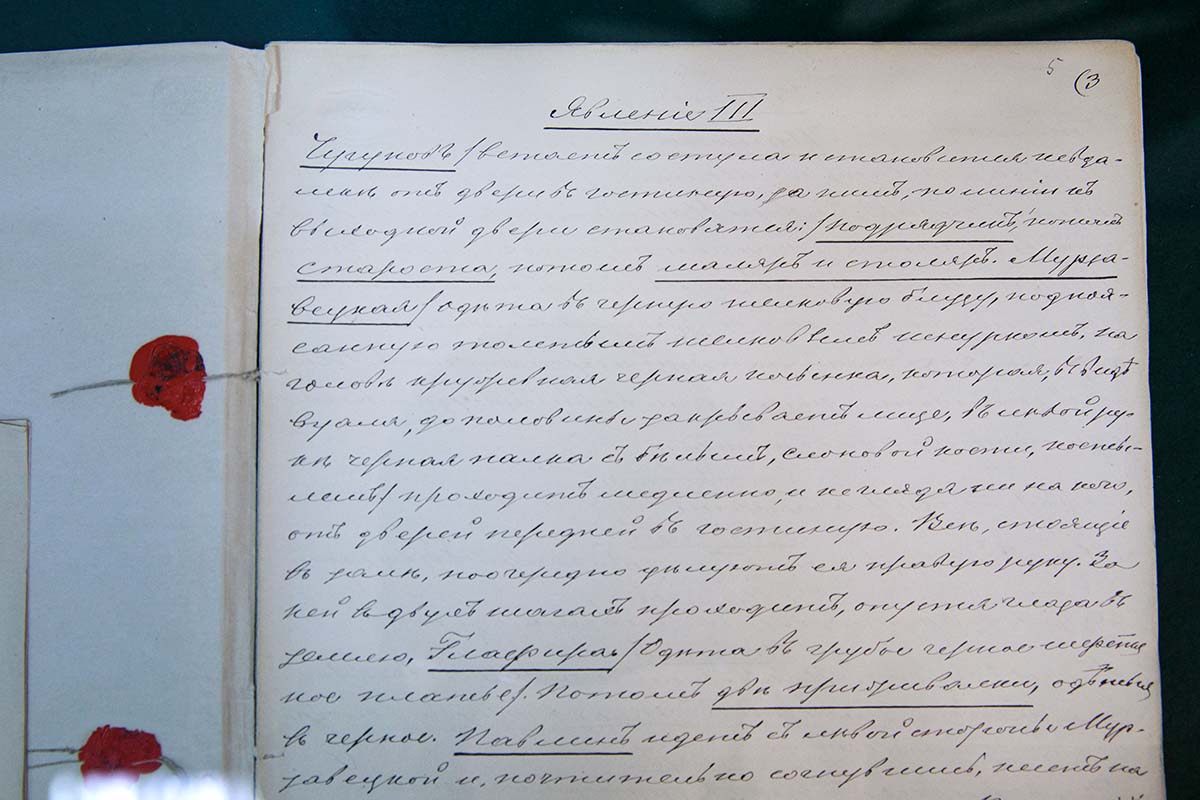 5 (3
Явленіе III
Чугуновъ (встаетъ со стула и становится неда-
леко отъ двери въ гостиную, за нимъ, по линіи къ
выходной двери становятся:) Подрядчикъ, потомъ
староста, потомъ маляръ и столяръ. Мурза-
вецкая (одѣта въ черную шелковую блузу, подпоя-
санную толстымъ шелковымъ шнуркомъ, на
головѣ кружевная черная косынка, которая, въ видѣ
вуаля, до половины закрываетъ лице, въ лѣвой ру-
кѣ черная палка съ бѣлымъ, слоновой кости, косты-
лемъ) проходитъ медленно, и не глядя ни на кого,
отъ дверей передней въ гостиную. Всѣ, стоящіе
въ залѣ, поочередно цѣлуютъ ея правую руку. За
ней въ двухъ шагахъ проходитъ, опустя глаза въ
землю, Глафира (Одѣта въ грубое черное шерстя
ное платье). Потомъ двѣ приживалки, одѣтыя
въ черное. Павлинъ идетъ съ лѣвой стороны Мур-
завецкой и, почтительно согнувшись, несетъ на